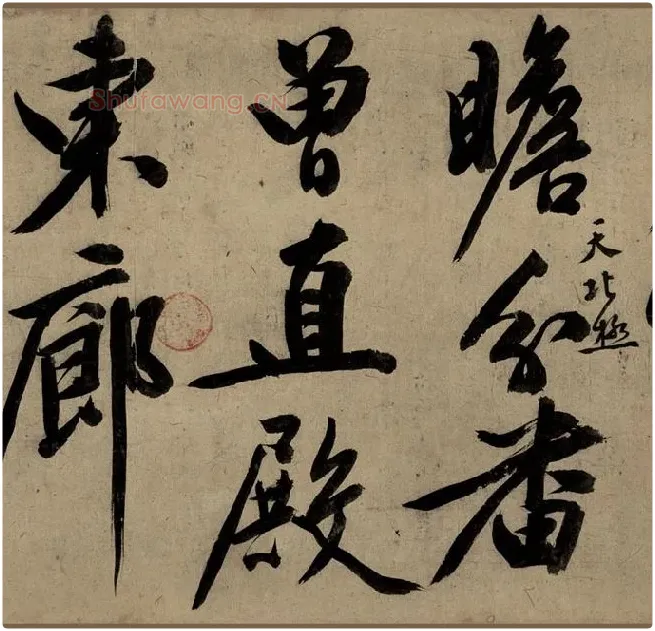 瞻分番
天北極
曾直殿
東廊
Shufawang.CN